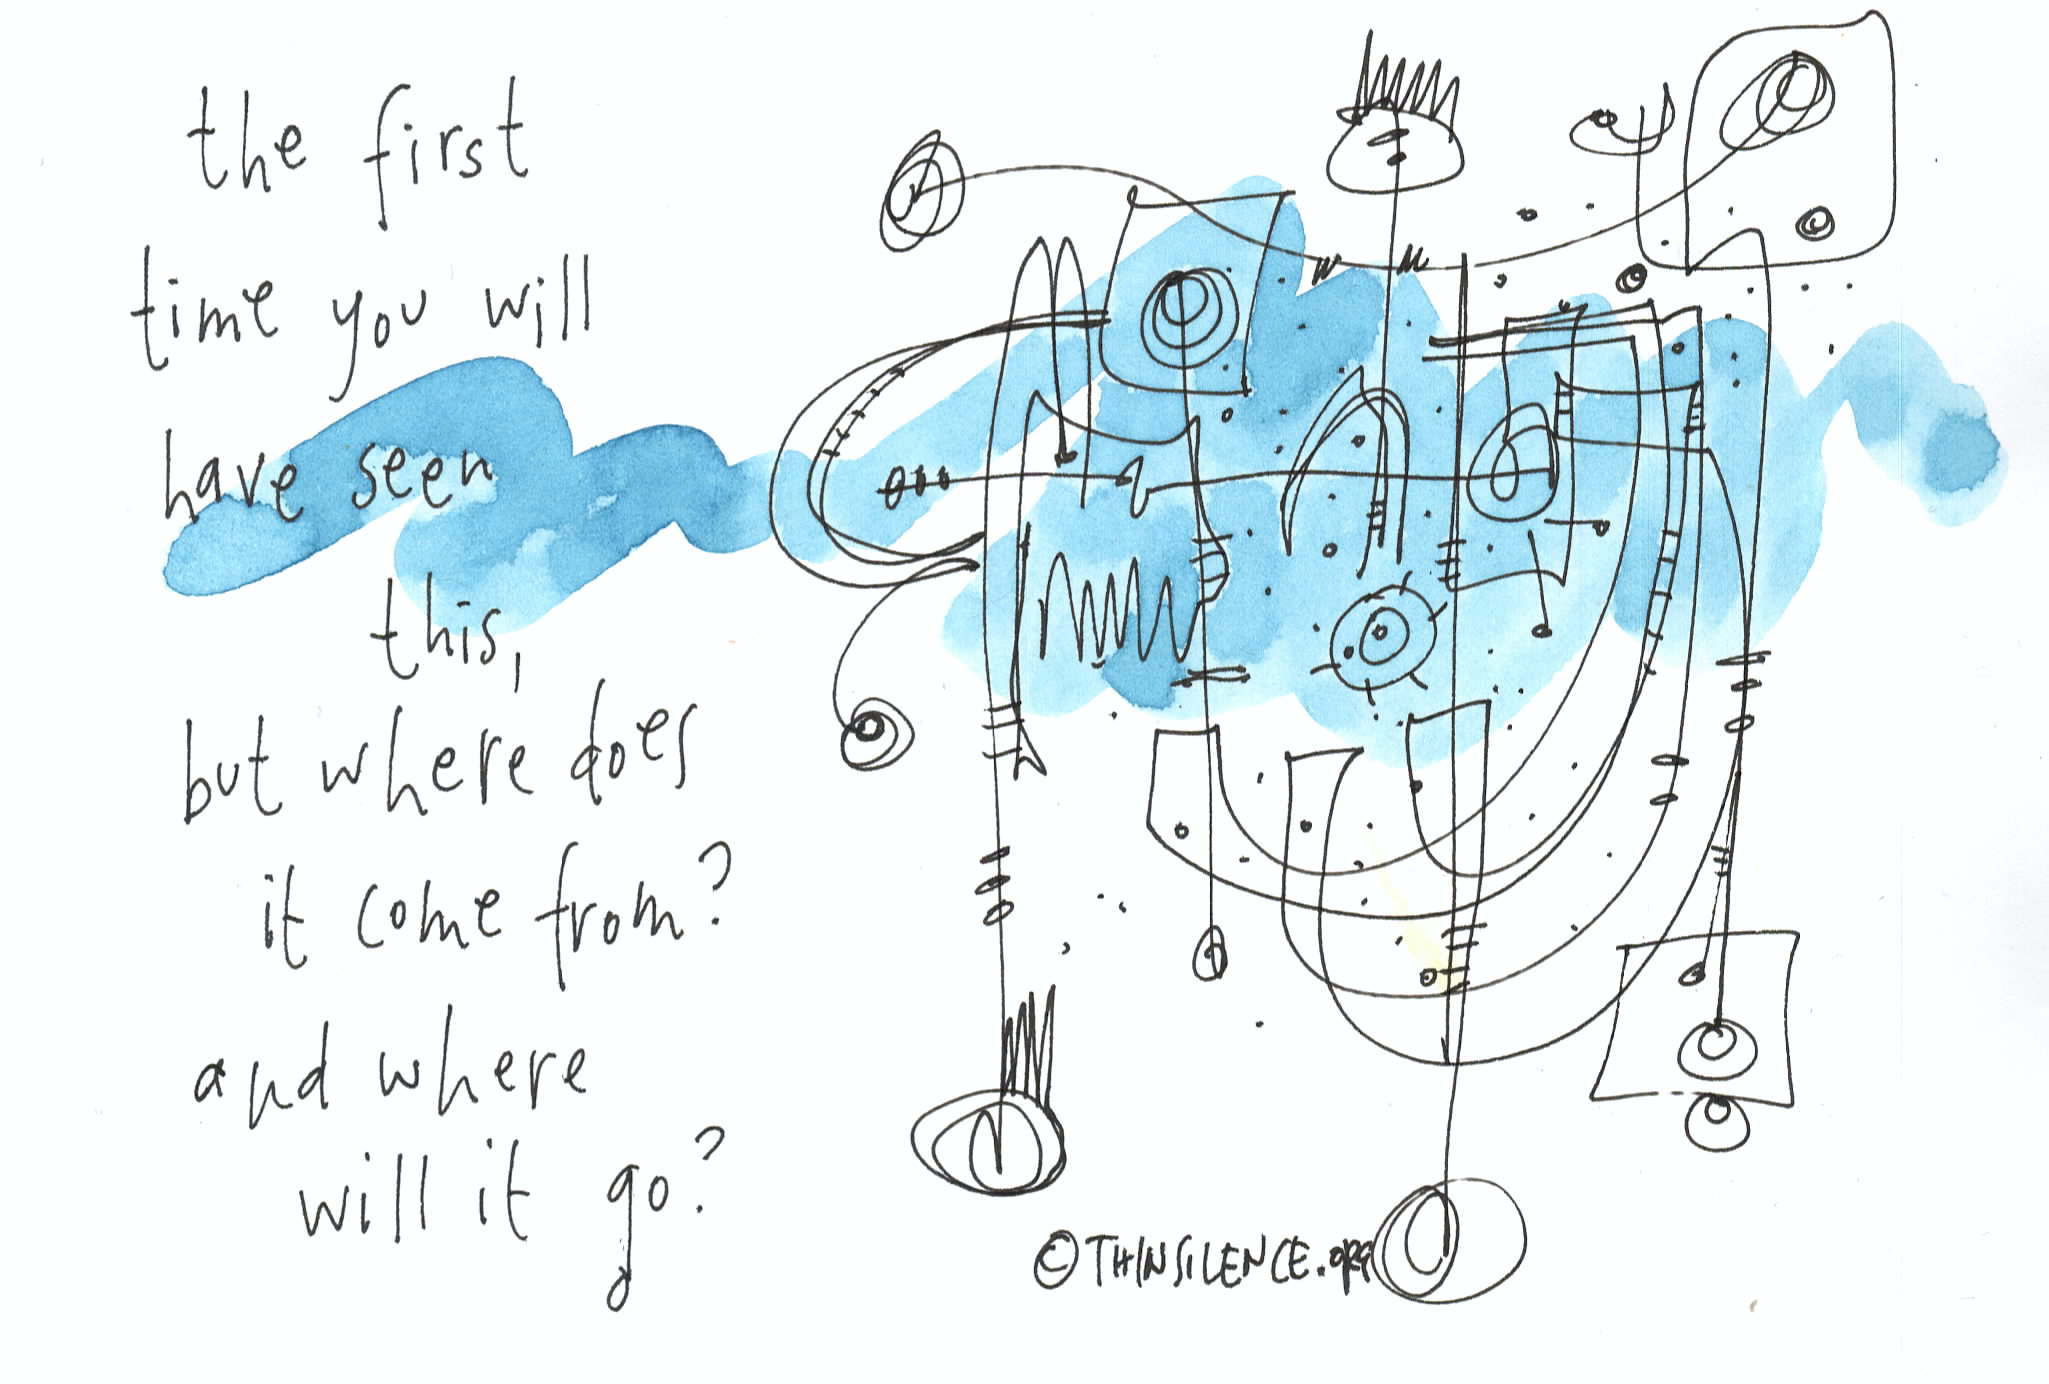 the first
time you will
have seen
this,
but where does
it come from?
and where
will it go?
©THINSILENCE.org